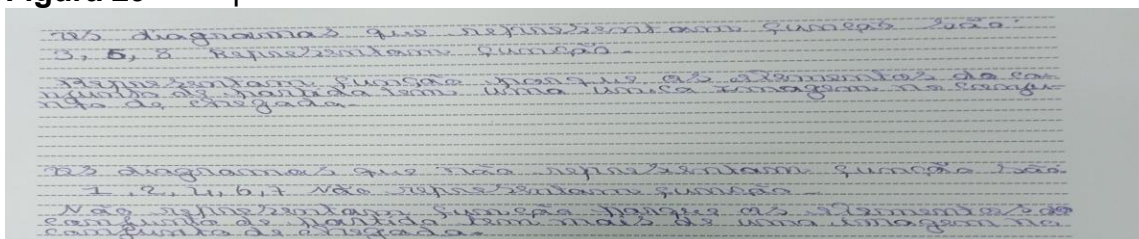 Os diagramas que representam função são:
3, 5, 8 Representam função.
Representam função porque os elementos do con-
junto de partida tem uma única imagem no conju-
nto de chegada.
Os diagramas que não representam função são
1, 2, 4, 6, 7 Não representam função.
Não representam função porque os elementos do
conjunto de partida tem mais de uma imagem no
conjunto de chegada.